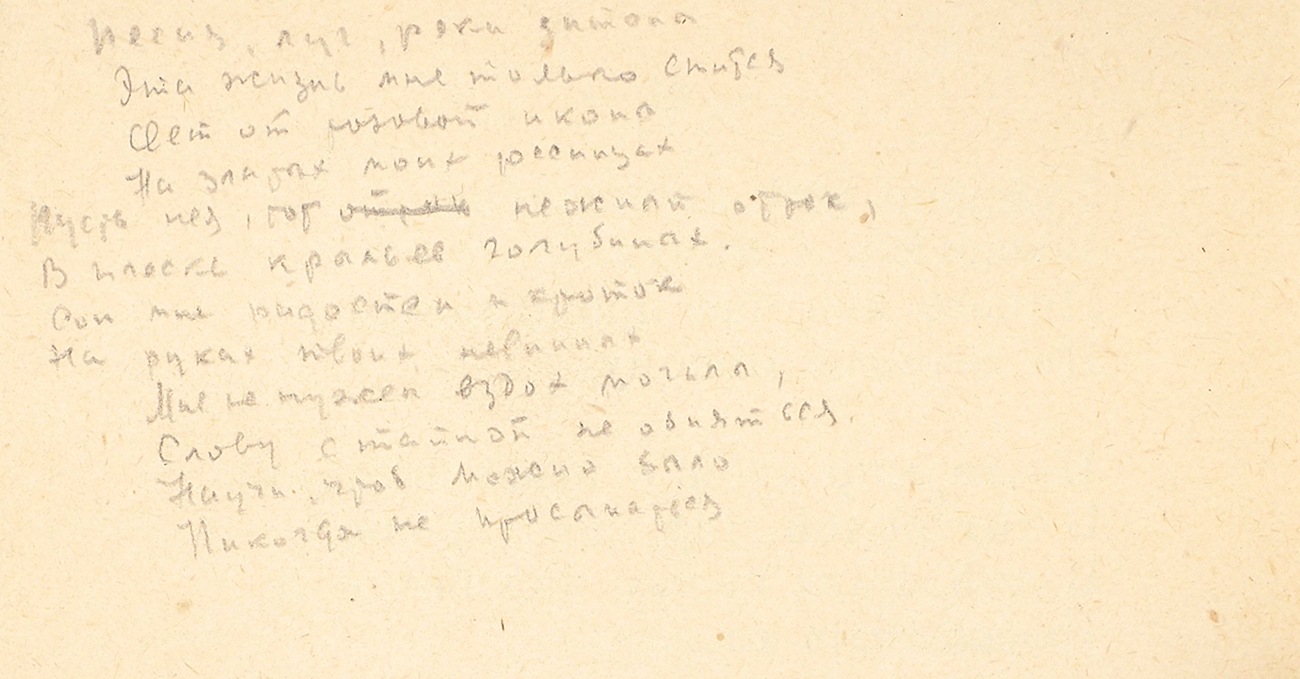 Песня, луг, реки затоны
Эта жизнь мне только снится
Свет от розовой иконы
На златых моих ресницах
Пусть не я, тот нежный отрок,
В плеске крыльев голубиных.
Сон мне радостен и кроток
На руках твоих невинных
Мне не нужен вздох могилы,
Слову с тайной не обняться.
Научи, чтоб можно было
Никогда не просыпаться